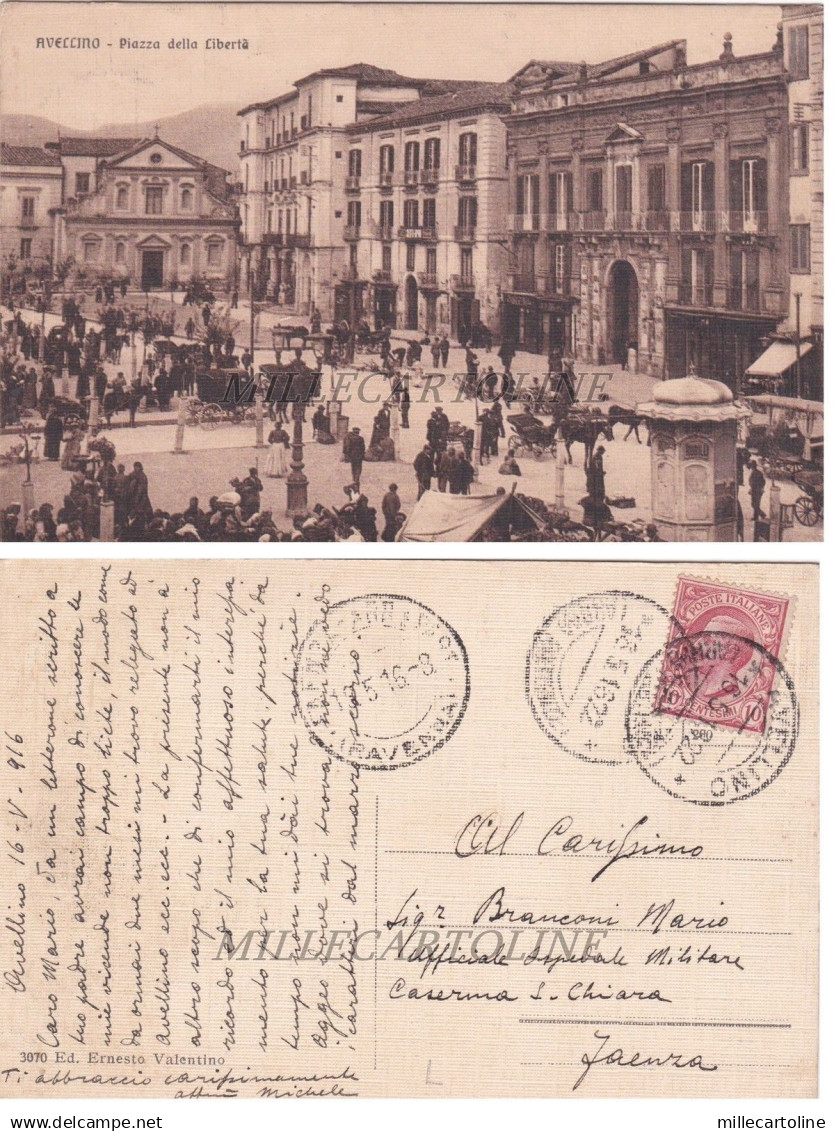 AVELLINO - Piazza della Libertà
MILLECARTOLINE
Avellino 16-V-916
Caro Mario, da un letterone scritto a
tuo padre avrai campo di conoscere le
mie vicende non troppo liete, il modo come
da ormai due mesi mi trovo relegato ad
Avellino ecc. ecc. - La presente non à
altro scopo che di confermarti il mio
ricordo ed il mio affettuoso interessa
mento per la tua salute, perché da
tempo non mi dài tue notizie.
Aggeo dove si trova? non ne vedo
i caratteri dal marzo scorso
3070 Ed. Ernesto Valentino
Ti abbraccio carissimamente
Michele
(RAVENNA)
5.16-8
POSTE ITALIANE
10 CENTESIMI 10
AVELLINO
Al Carissimo
Sigr Branconi Mario
Officiale Ospedale Militare
Caserma S. Chiara
Faenza
MILLECARTOLINE
L
millecartoline